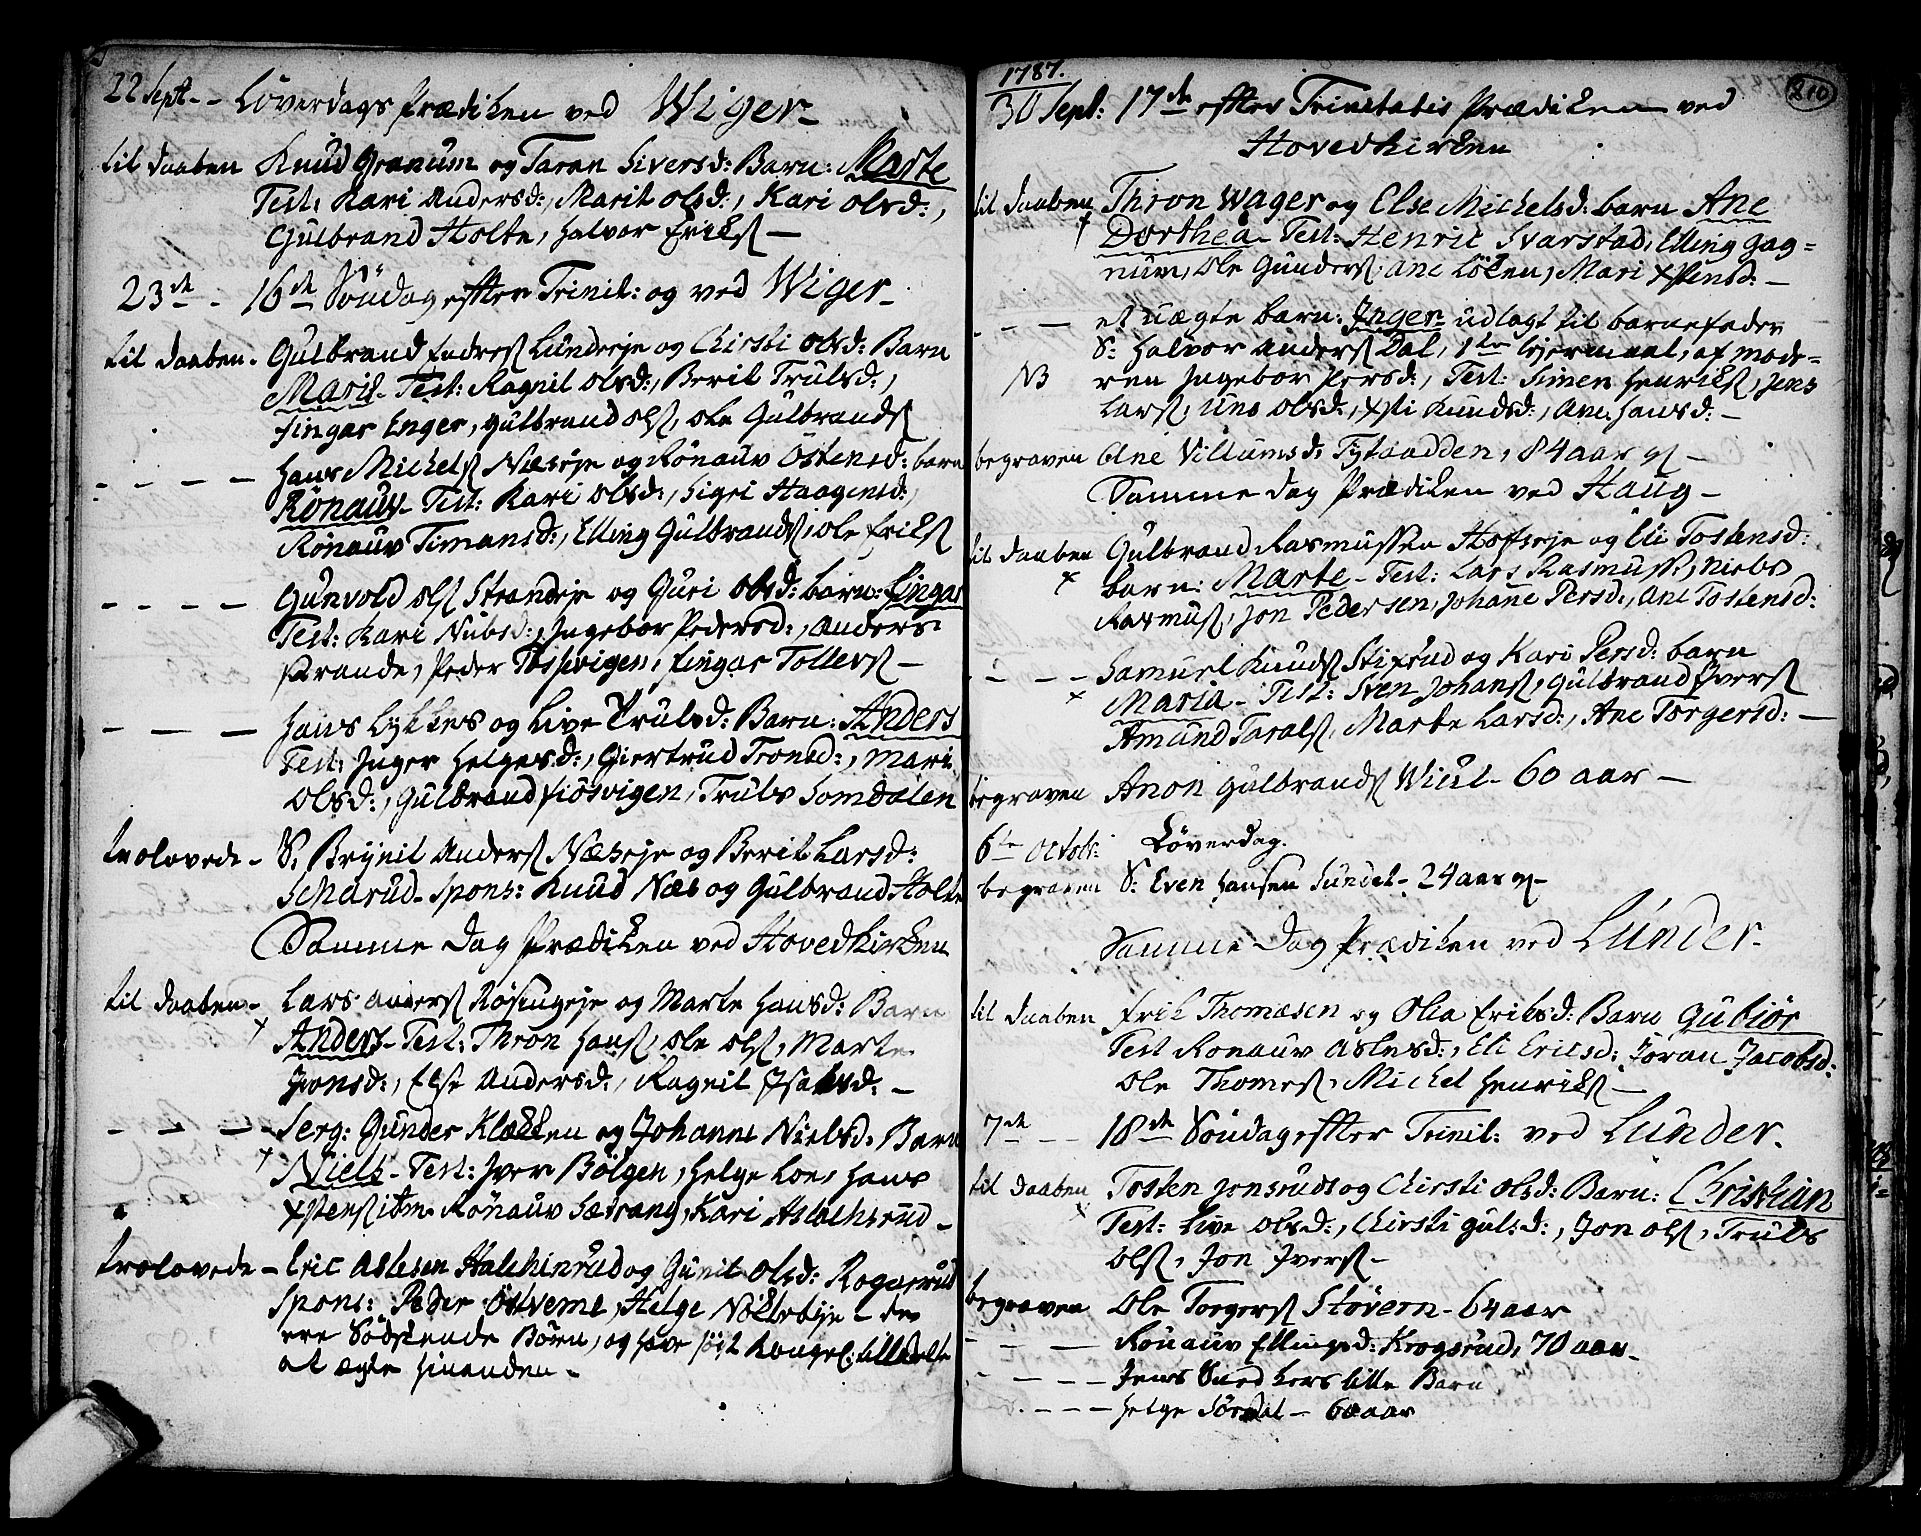 22 Sept - - Löverdags Prædiken ved Wiger -
til daaben Knud Granum og Taran Siversd: Barn: Marte
Test: Kari Andersd:, Marit Olsd:, Kari Olsd:,
Gulbrand Holte, Halvor Eriks –
23de - 16de Söndag effter Trinit: og ved Wiger -
til daaben - Gulbrand Endres Lunderje og Chirsti Olsd: Barn
Marit - Test: Ragnil Olsd:, Berit Trulsd:,
Fingar Enger, Gulbrand Ols, Ole Gulbrands
- - - - Hans Michels Næseje og Rönauv Östensd: barn
Rönauv - Test: Kari Olsd:, Sigri Haagensd:,
Rönauv Timansd:, Elling Gulbrands, Ole Eriks
- - - - Gunvold Ols Strandeje og Guri Olsd: barn: Fingar
Test: Kari Nubsd:, Ingebor Pedersd:, Anders
Strande, Peder Tossevigen, Fingar Tollers –
- - - Hans Lykkes og Live Trulsd: Barn: Anders
Test: Inger Helgesd:, Giertrud Tronsd:, Mari
Olsd:, Gulbrand Fiösvigen, Truls Somdalen
trolovede - S. Brynil Anders Næseje og Berit Larsd:
Scharud - Spons: Knud Næs og Gulbrand Holte
Samme Dag Prædiken ved Hovedkirken
til daaben - Lars Anders Rösingeje og Marte Hansd: Barn
Anders - Test: Thron Hans, Ole Ols, Marte
Jonsd:, Else Andersd:, Ragnil Isaksd: –
- - - - Serg: Gunder Klækken og Johanne Nielsd: Barn
Niels - Test: Iver Bölgen, Helge Loe, Hans
Xstens item Rönauv Sætrang, Kari Aslachsrud –
trolovede - Eric Aslesen Halchinrud og Gunil Olsd: Rognerud
Spons: Peder Ostveme, Helge Vækleje - de
ere Södskende Börn, og have föst Kongel: tilladelse
at ægte hinanden -
1787.
210
30 Sept: 17de effter Trinitatis Prædiken ved
Hovedkirken
til daaben Thron Wager og Else Michelsd: barn Ane
Dorthea - Test: Henric Svarstad, Elling Gag=
num, Ole Gunders, Ane Löken, Mari Xstensd: –
- - - et uægte barn: Inger udlagt til barnefader
S: Halvor Anders Dal, 1ste lejermaal, af mode=
NB ren Ingebor Persd:, Test: Simen Henriks, Jens
Lars, Une Olsd:, Xsti Knudsd:, Ane Hansd: –
begraven Ane Villumsd: Tytaadden, 84 aar g –
Samme dag Prædiken ved Haug –
til daaben Gulbrand Rasmussen Hofseje og Eli Tostensd:
barn: Marte - Test: Lars Rasmuss, Niels
Rasmus, Jon Pedersen, Johane Persd:, Ane Tostensd:
- - - - Samuel Knuds Stixrud og Kari Persd: barn
Maria - Test: Sven Johans, Gulbrand Ivers
Amund Tarals, Marte Larsd:, Ane Torgersd: –
begraven Anon Gulbrands Wiul - 60 aar –
6te Octobr: Löverdag.
begraven S: Even Hansen Sundet - 24 aar g –
Samme Dag Prædiken ved Lunder -
til daaben Erik Thomæsen og Olia Eriksd: Barn Gubiör
Test Ronauv Aslesd:, Eli Ericsd: Joran Jacobsd:
Ole Thomes, Michel Henriks –
7de - - 18de Söndag effter Trinit: ved Lunder.
til daaben Tosten Jonsrud og Chirsti Olsd: Barn: Christian
Test: Live Olsd:, Chirsti Gulsd:, Jon Ols, Truls
Ols, Jon Ivers –
begraven Ole Torgers Stövern - 64 aar
- - - Rönauv Ellingsd: Krogsrud, 70 aar -
- - - - Jens Snedkers lille Barn
- - - - Helge Sördal - 60 aar